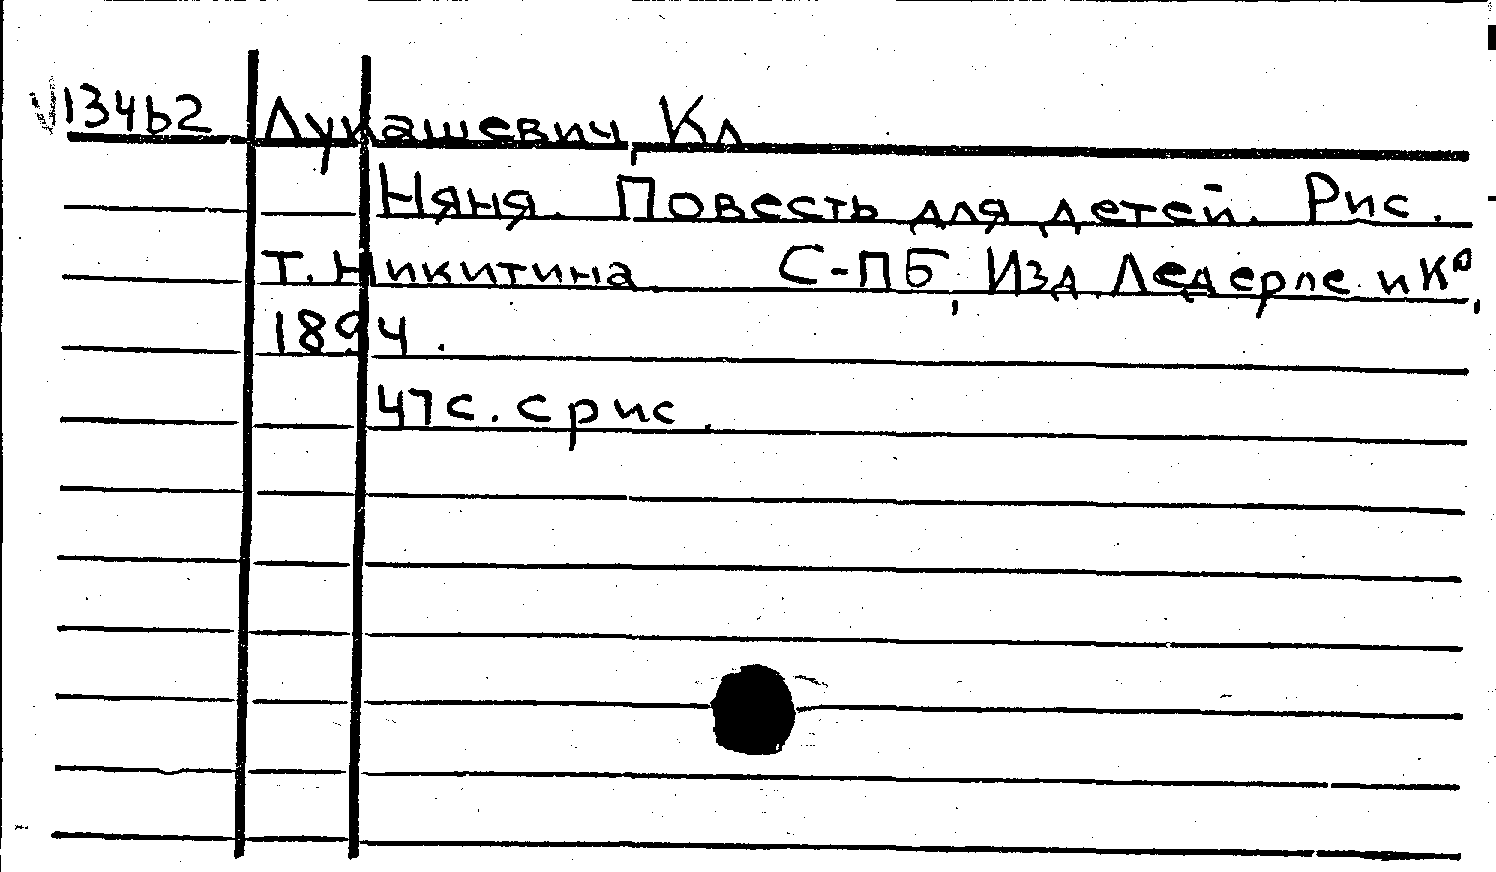 13462 Лукашевич, Кл
Няня. Повесть для детей. Рис.
Т. Никитина. С-ПБ, Изд. Ледерле и К⁰,
1894.
47 с. с рис.